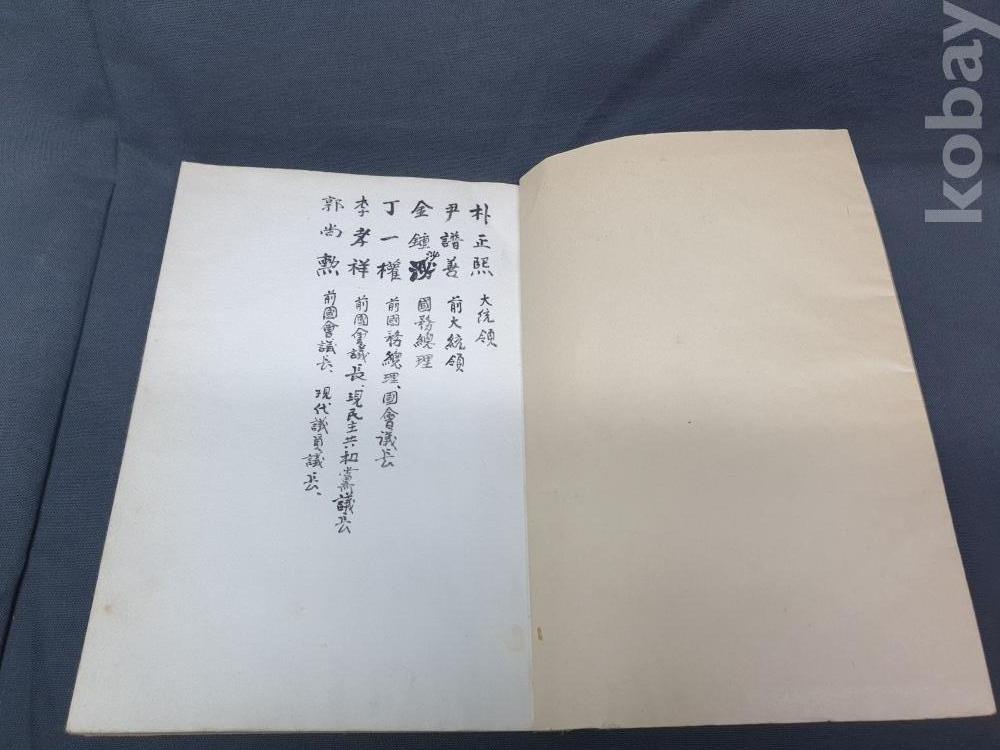 朴正熙 大统領
尹譜善 前大統領
金鍾泌 國務總理
丁一權 前國務總理、國會議長
李孝祥 前國會議長、現民主共和黨議長
郭尚勲 前國會議長、現代議員議長、
kobay